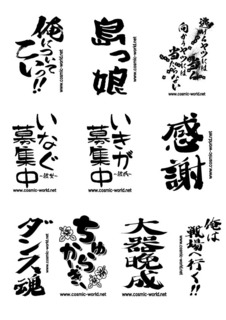 俺について
こいっ!!
www.cosmic-world.net
島っ娘
www.cosmic-world.net
向かうやつには
当たらない
www.cosmic-world.net
いなぐ
募集中
~彼女~
www.cosmic-world.net
いきが
募集中
~彼氏~
www.cosmic-world.net
感謝
www.cosmic-world.net
ダンス魂
www.cosmic-world.net
ちゅら
www.cosmic-world.net
大器
晩成
www.cosmic-world.net
俺は
戦場へ行く!!
www.cosmic-world.net